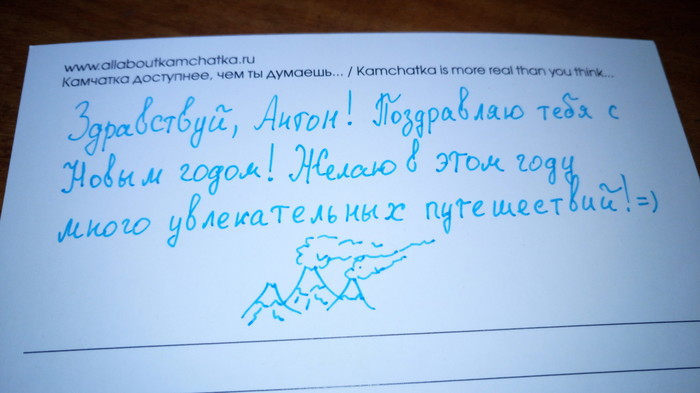 www.allaboutkamchatka.ru
Камчатка доступнее, чем ты думаешь... / Kamchatka is more real than you think...
Здравствуй, Антон! Поздравляю тебя с
Новым годом! Желаю в этом году
много увлекательных путешествий! =)